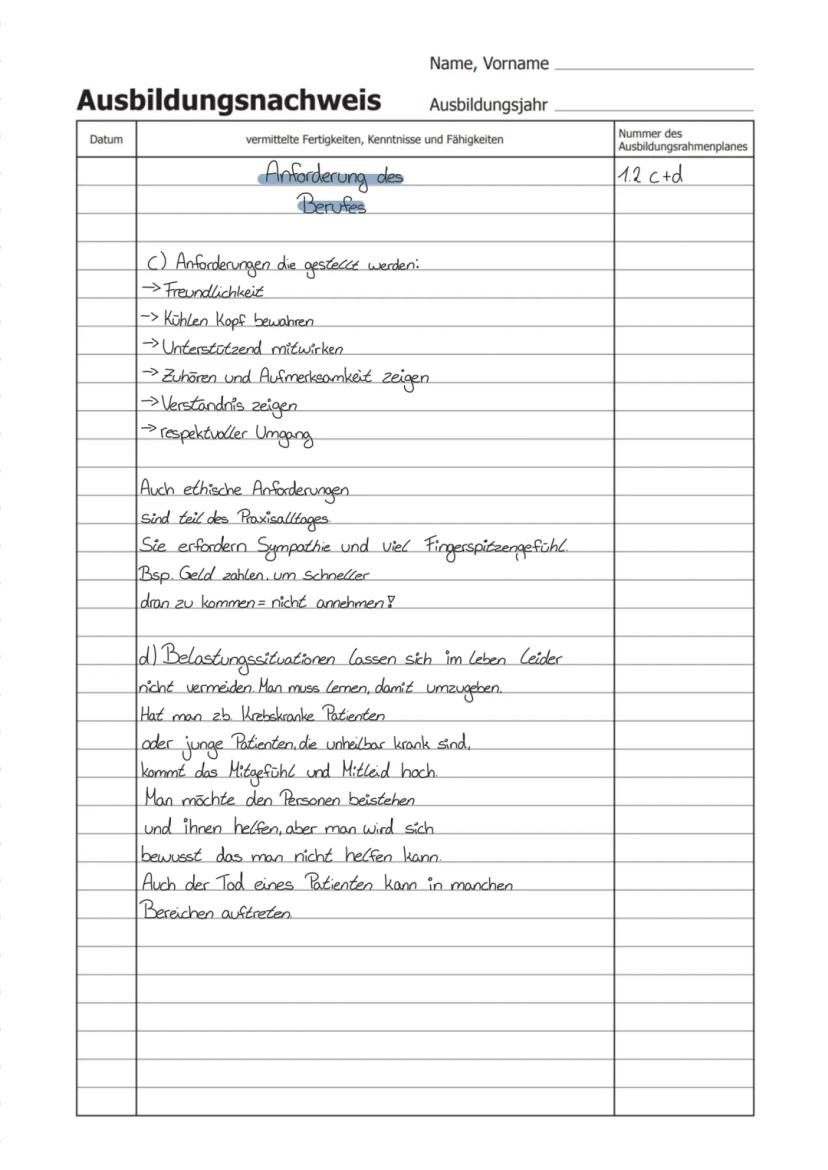 Name, Vorname
Ausbildungsnachweis
Ausbildungsjahr
Datum
vermittelte Fertigkeiten, Kenntnisse und Fähigkeiten
Nummer des
Ausbildungsrahmenplanes
Anforderung des
1.2 c+d
Berufes
c) Anforderungen die gestellt werden:
→ Freundlichkeit
→ Kühlen Kopf bewahren
→ Unterstützend mitwirken
→ Zuhören und Aufmerksamkeit zeigen
→ Verständnis zeigen
→ respektvoller Umgang
Auch ethische Anforderungen
sind teil des Praxisalltages.
Sie erfordern Sympathie und viel Fingerspitzengefühl.
Bsp. Geld zahlen, um schneller
dran zu kommen = nicht annehmen!
d) Belastungssituationen lassen sich im Leben leider
nicht vermeiden. Man muss lernen, damit umzugehen.
Hat man zb. Krebskranke Patienten
oder junge Patienten, die unheilbar krank sind,
kommt das Mitgefühl und Mitleid hoch.
Man möchte den Personen beistehen
und ihnen helfen, aber man wird sich
bewusst das man nicht helfen kann.
Auch der Tod eines Patienten kann in manchen
Bereichen auftreten.